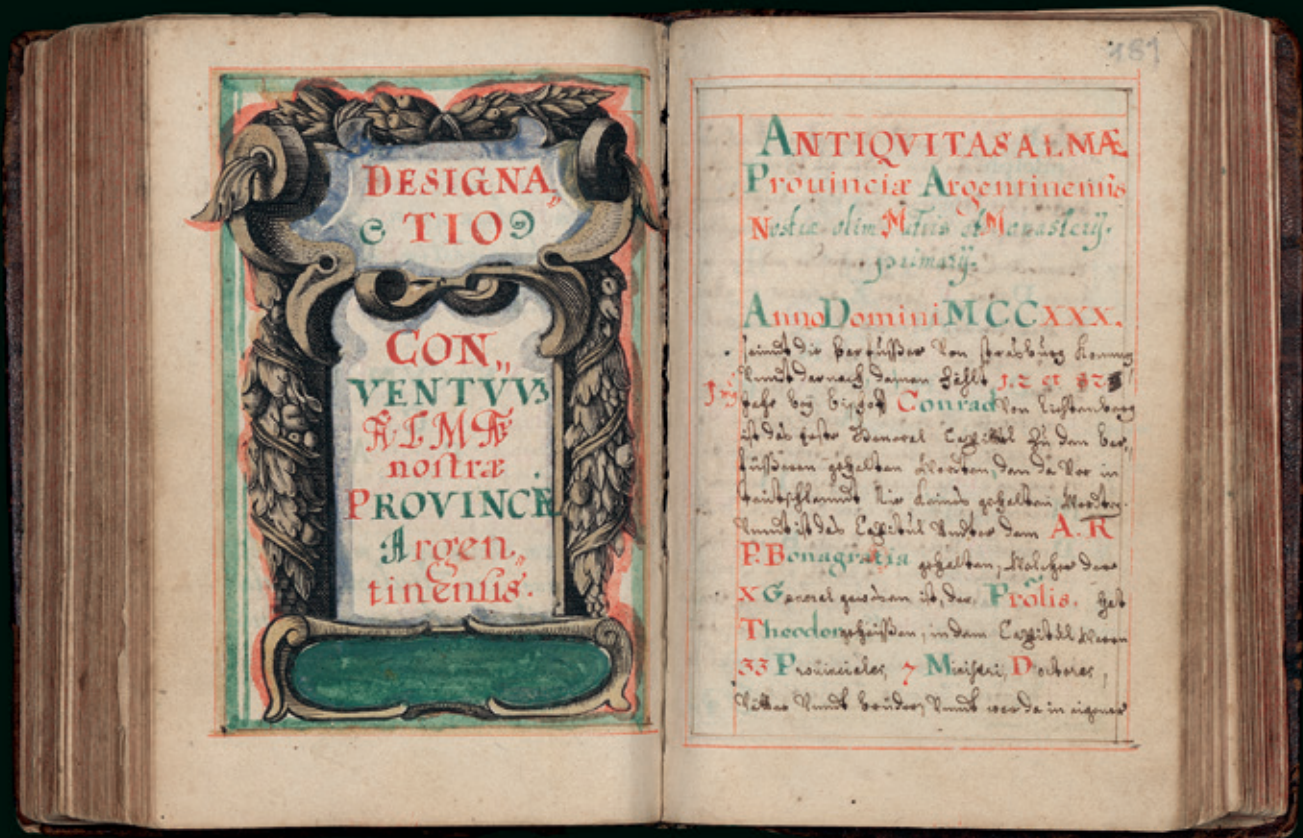 DESIGNA„
TIO
CON„
VENTVVꝫ
ALMÆ
nostræ
PROVINCIÆ
Argen„
tinensis.
181
ANTIQVITAS ALMÆ
Prouinciæ Argentinensis
Nostræ olim Matris et Monasterÿ
primarÿ.
Anno Domini MCCXXX.
seindt die Barfuͤsser Von strasburg kommen
Vnndt darnach, da man Zehlt
Jahr beÿ Bischoff Conradt Von Lichtenberg
ist das erste General Capitul Zu den Bar„
fuͤsseren gehalten worden, dan da Vor in
teutschlanndt nie kains gehalten worden.
Vnndt ist das Capitul Vnder dem A. R
P. Bonagratia gehalten, welcher der
X General gewesen ist, der Prõlis. hat
Theodor gehaissen, in dem Capitul waren
33 Prouinciales, 7 Ministri, Doctores,
Vätter Vnndt brüder, Vnndt war da in aigener